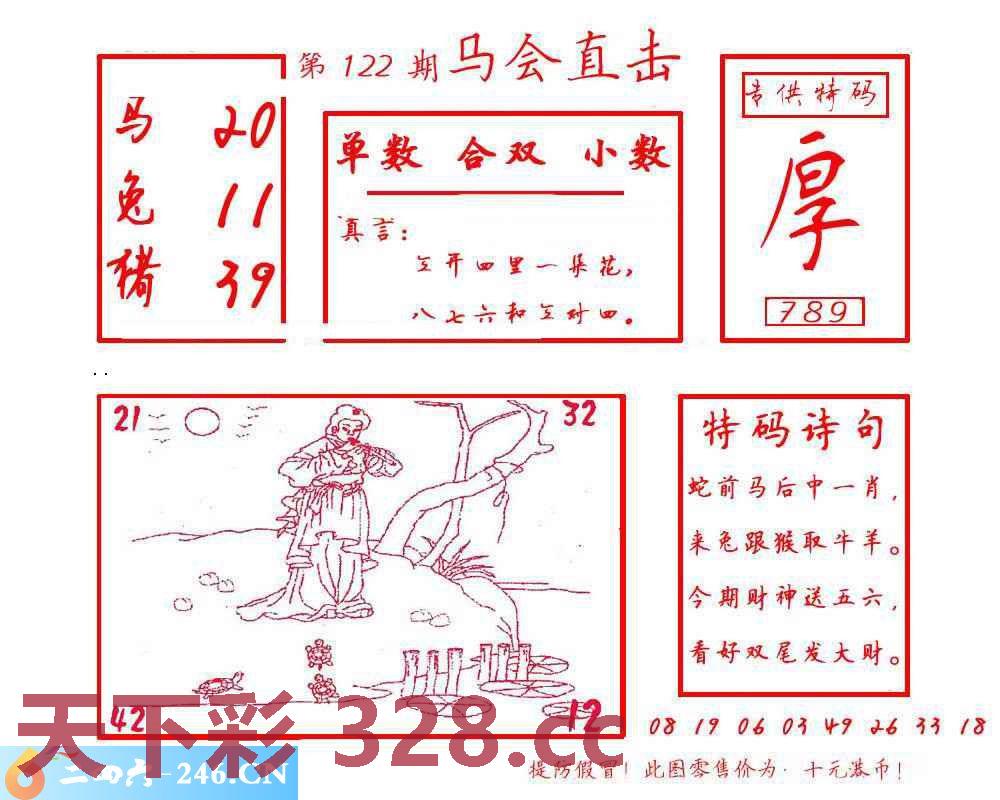 第 122 期 马会直击
马 20
兔 11
猪 39
单数 合双 小数
真言：
三开四里一朵花，
八七六和三对四。
专供特码
厚
789
21
32
42
12
特码诗句
蛇前马后中一肖，
来兔跟猴取牛羊。
今期财神送五六，
看好双尾发大财。
08 19 06 03 49 26 33 18
天下彩 328.cc
二四六-246.CN
提防假冒！此图零售价为·十元港币！